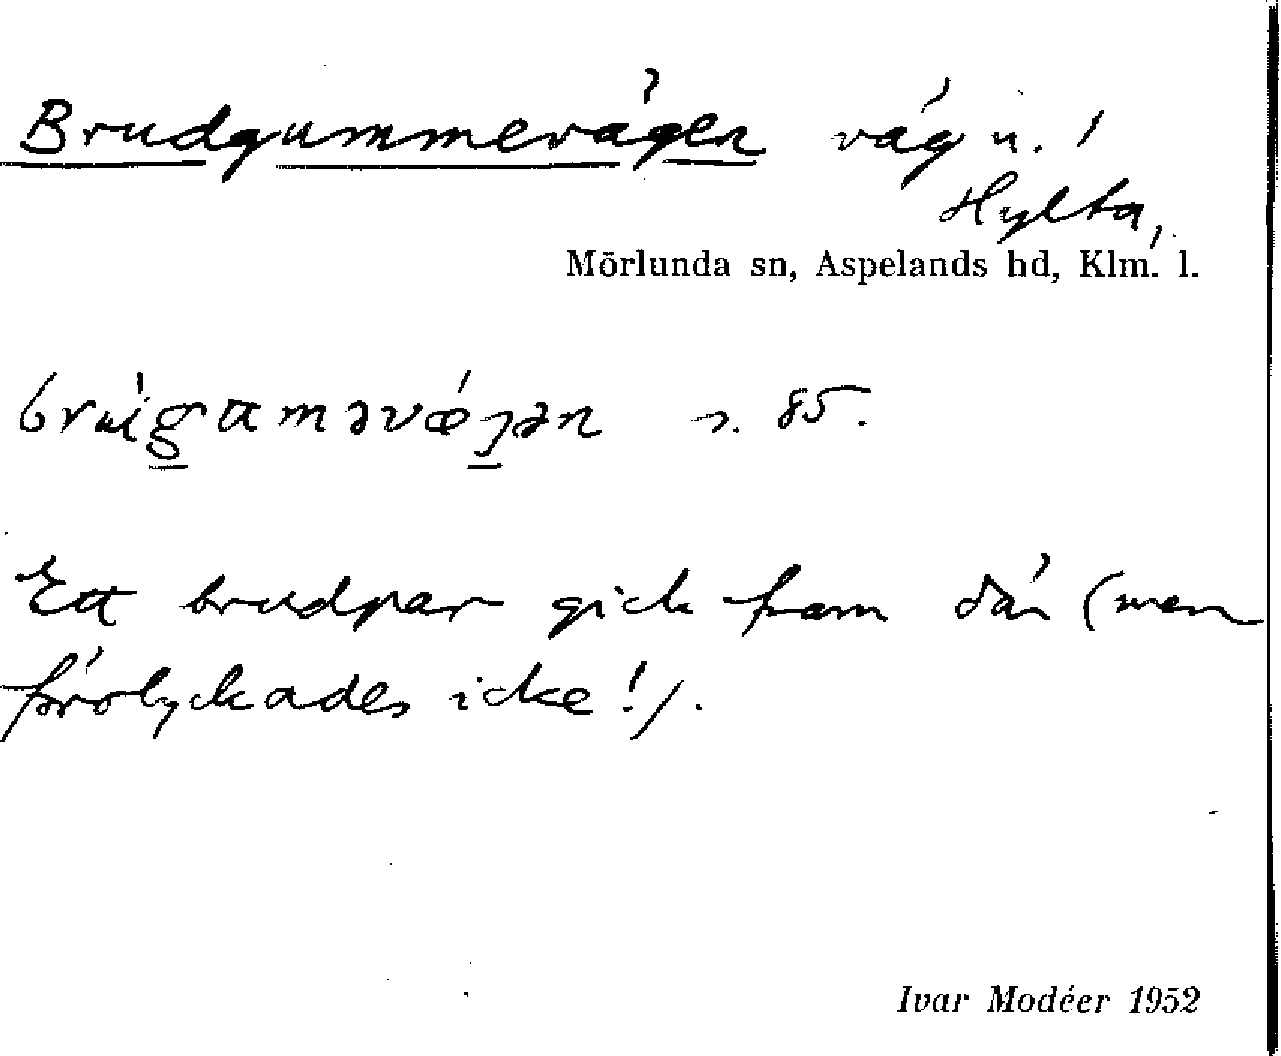 Brudgummevägen väg u. /
Hylta,
Mörlunda sn, Aspelands hd, Klm. l.
s. 85.
Ett brudpar gick fram där (men
förolyckades icke!).
Ivar Modéer 1952